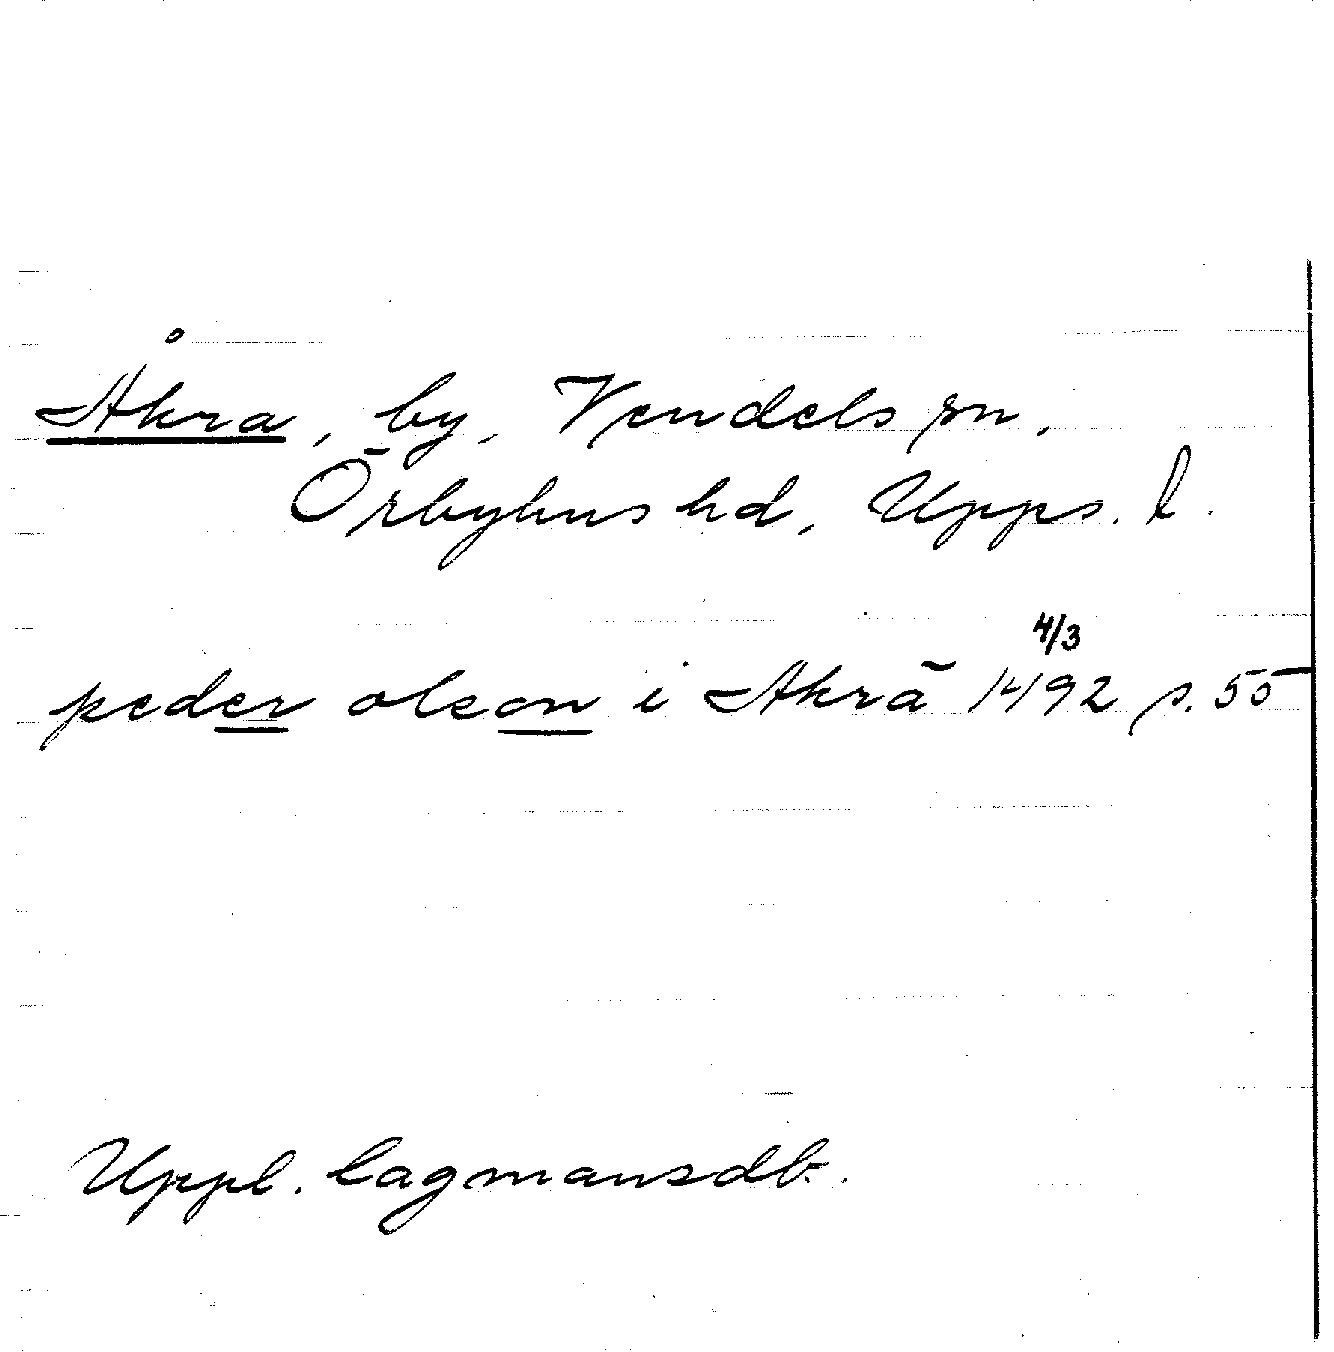 Åkra, by, Vendels sn,
Örbyhus hd, Upps. l.
4/3
peder olson i Akrā 1492 s. 55
Uppl. lagmansdb.